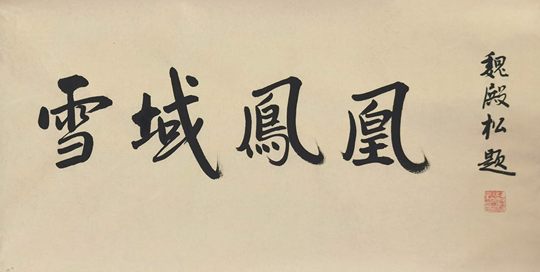 雪域鳳凰
魏殿松题